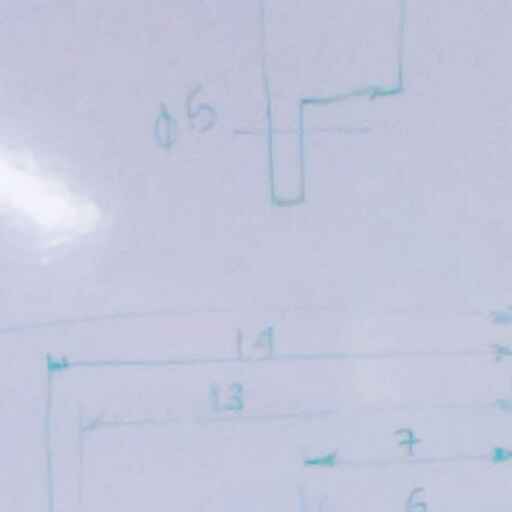 ϕ5
14
13
7
6